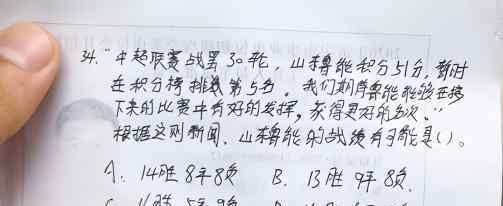 34. "中超联赛战罢30轮，山东鲁能积分51分，暂时
在积分榜排载第5名。我们期盼鲁能能够在接
下来的比赛中有好的发挥，获得更好的名次。"
根据这则新闻，山东鲁能的战绩有可能是()。
A. 14胜8平8负 B. 13胜9平8负